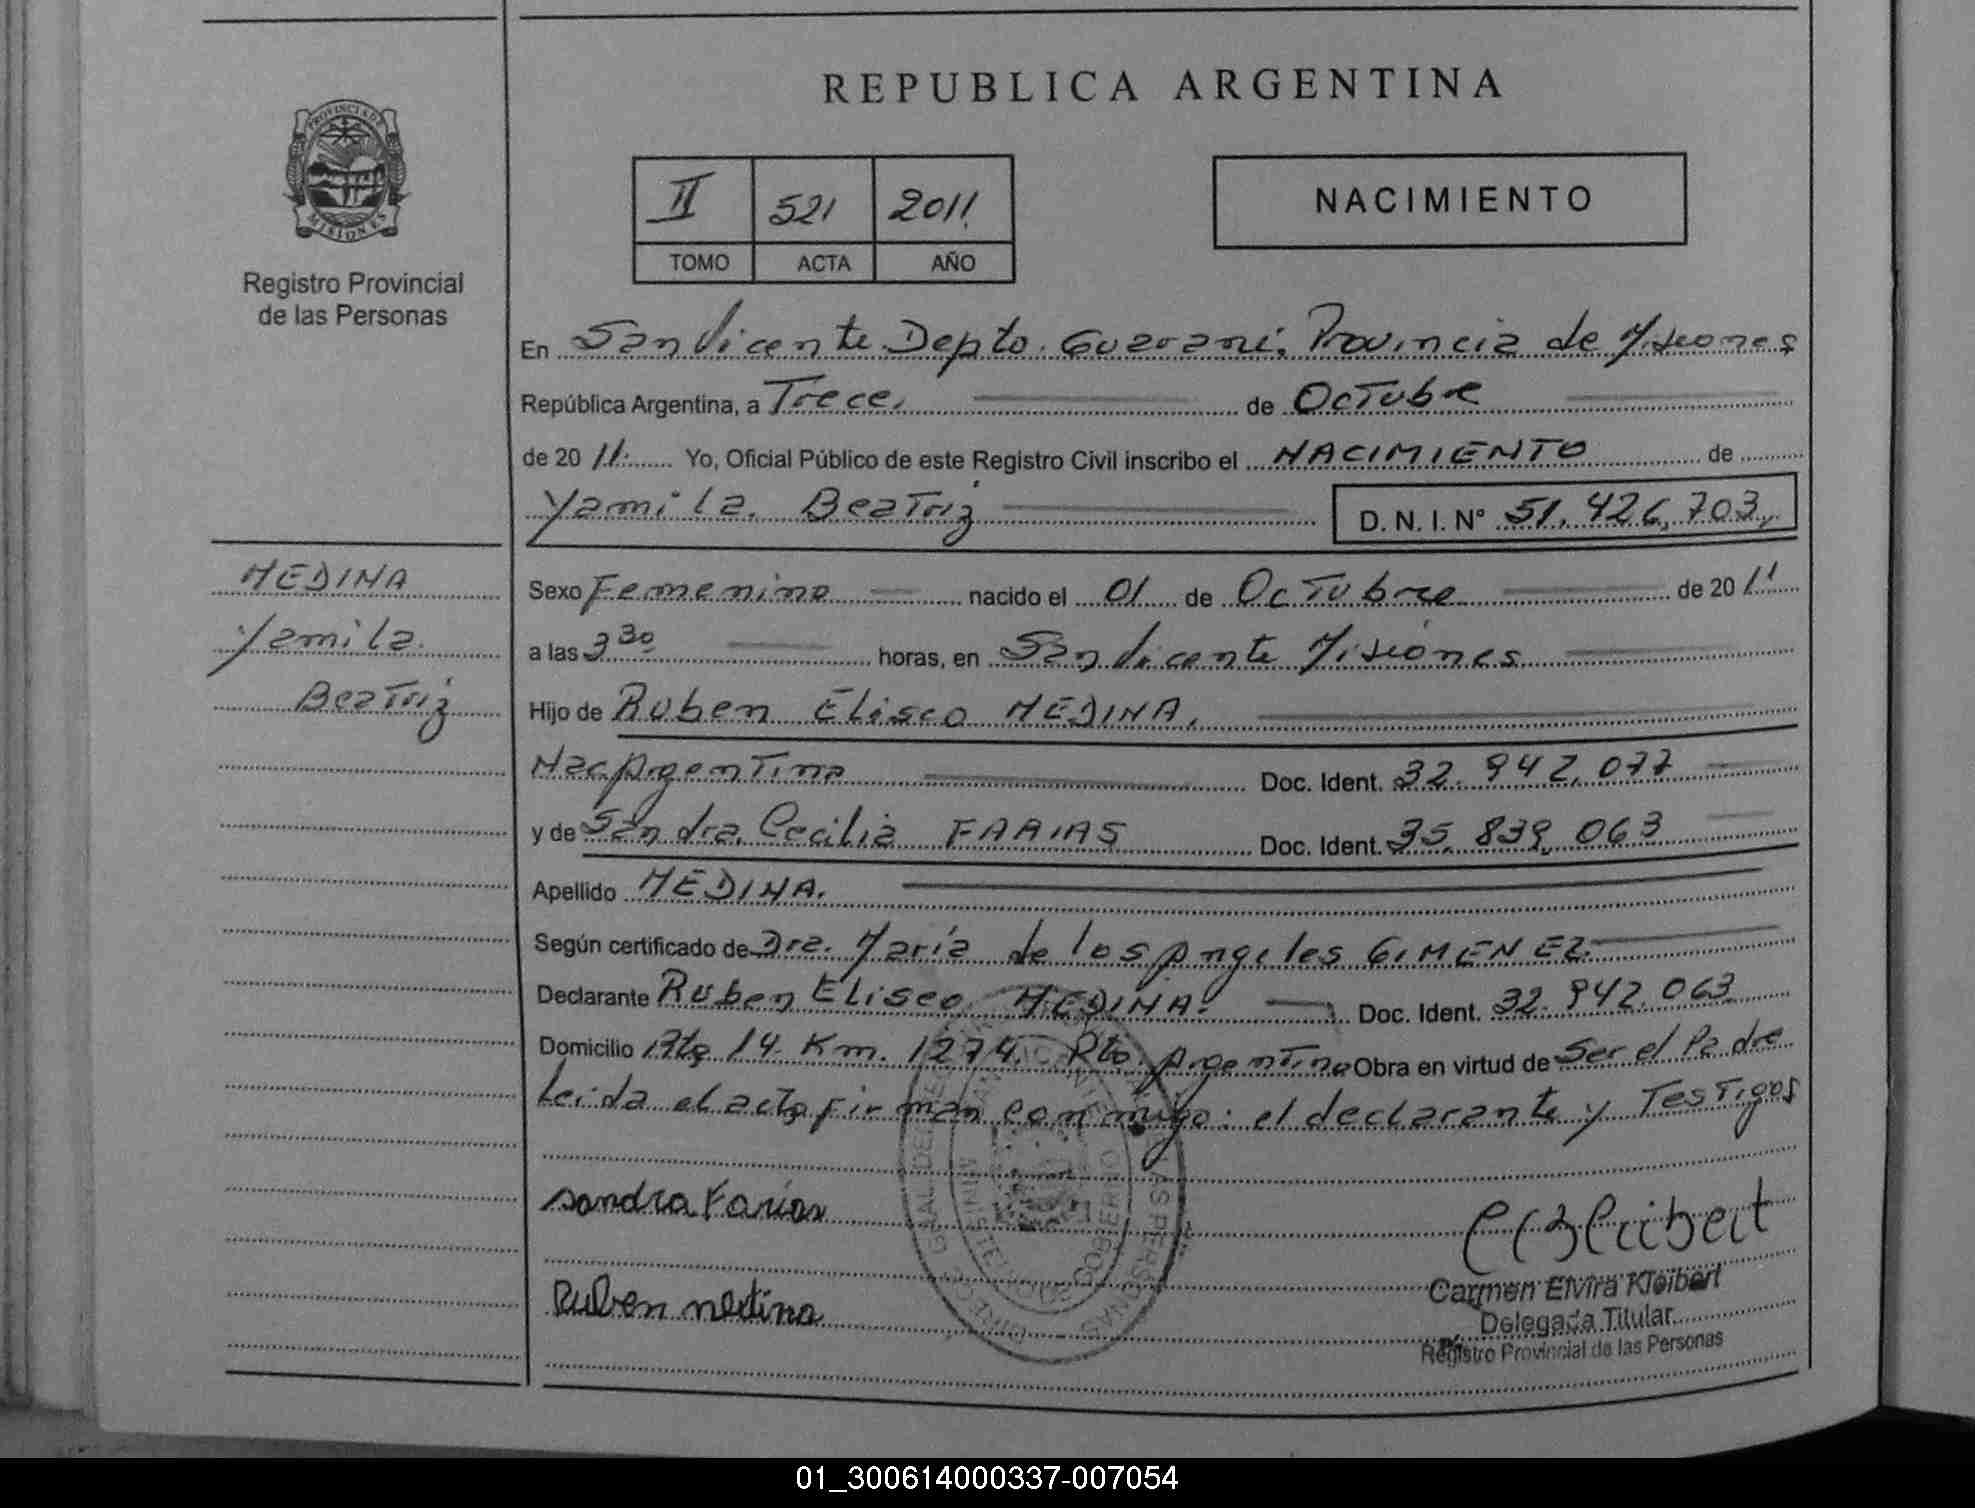 REPUBLICA ARGENTINA
PROVINCIA DE MISIONES
Registro Provincial
de las Personas
II 521 2011
TOMO ACTA AÑO
NACIMIENTO
En San Vicente Depto. Guaraní, Provincia de Misiones
República Argentina, a Trece, de Octubre
de 20 11. Yo, Oficial Público de este Registro Civil inscribo el NACIMIENTO de
Yamila Beatriz D. N. I. Nº 51.426,703,
MEDINA
Yamila
Beatriz
Sexo Femenino nacido el 01 de Octubre de 20 11
a las 3 30 horas, en San Vicente Misiones
Hijo de Ruben Eliseo MEDINA,
Nac Argentina Doc. Ident. 32.942,077
y de Sandra Cecilia FARIAS Doc. Ident. 35,839,063
Apellido MEDINA.
Según certificado de Dra. María de los Angeles GIMENEZ.
Declarante Ruben Eliseo MEDINA. Doc. Ident. 32.942.063
Domicilio Rta 14 Km. 1274. Pto. Argentino Obra en virtud de Ser el Padre
Leida el acta firman conmigo: el declarante y Testigos
Sandra Farias
Ruben Medina
Carmen Elvira Kleibert
Delegada Titular
Registro Provincial de las Personas
01_300614000337-007054